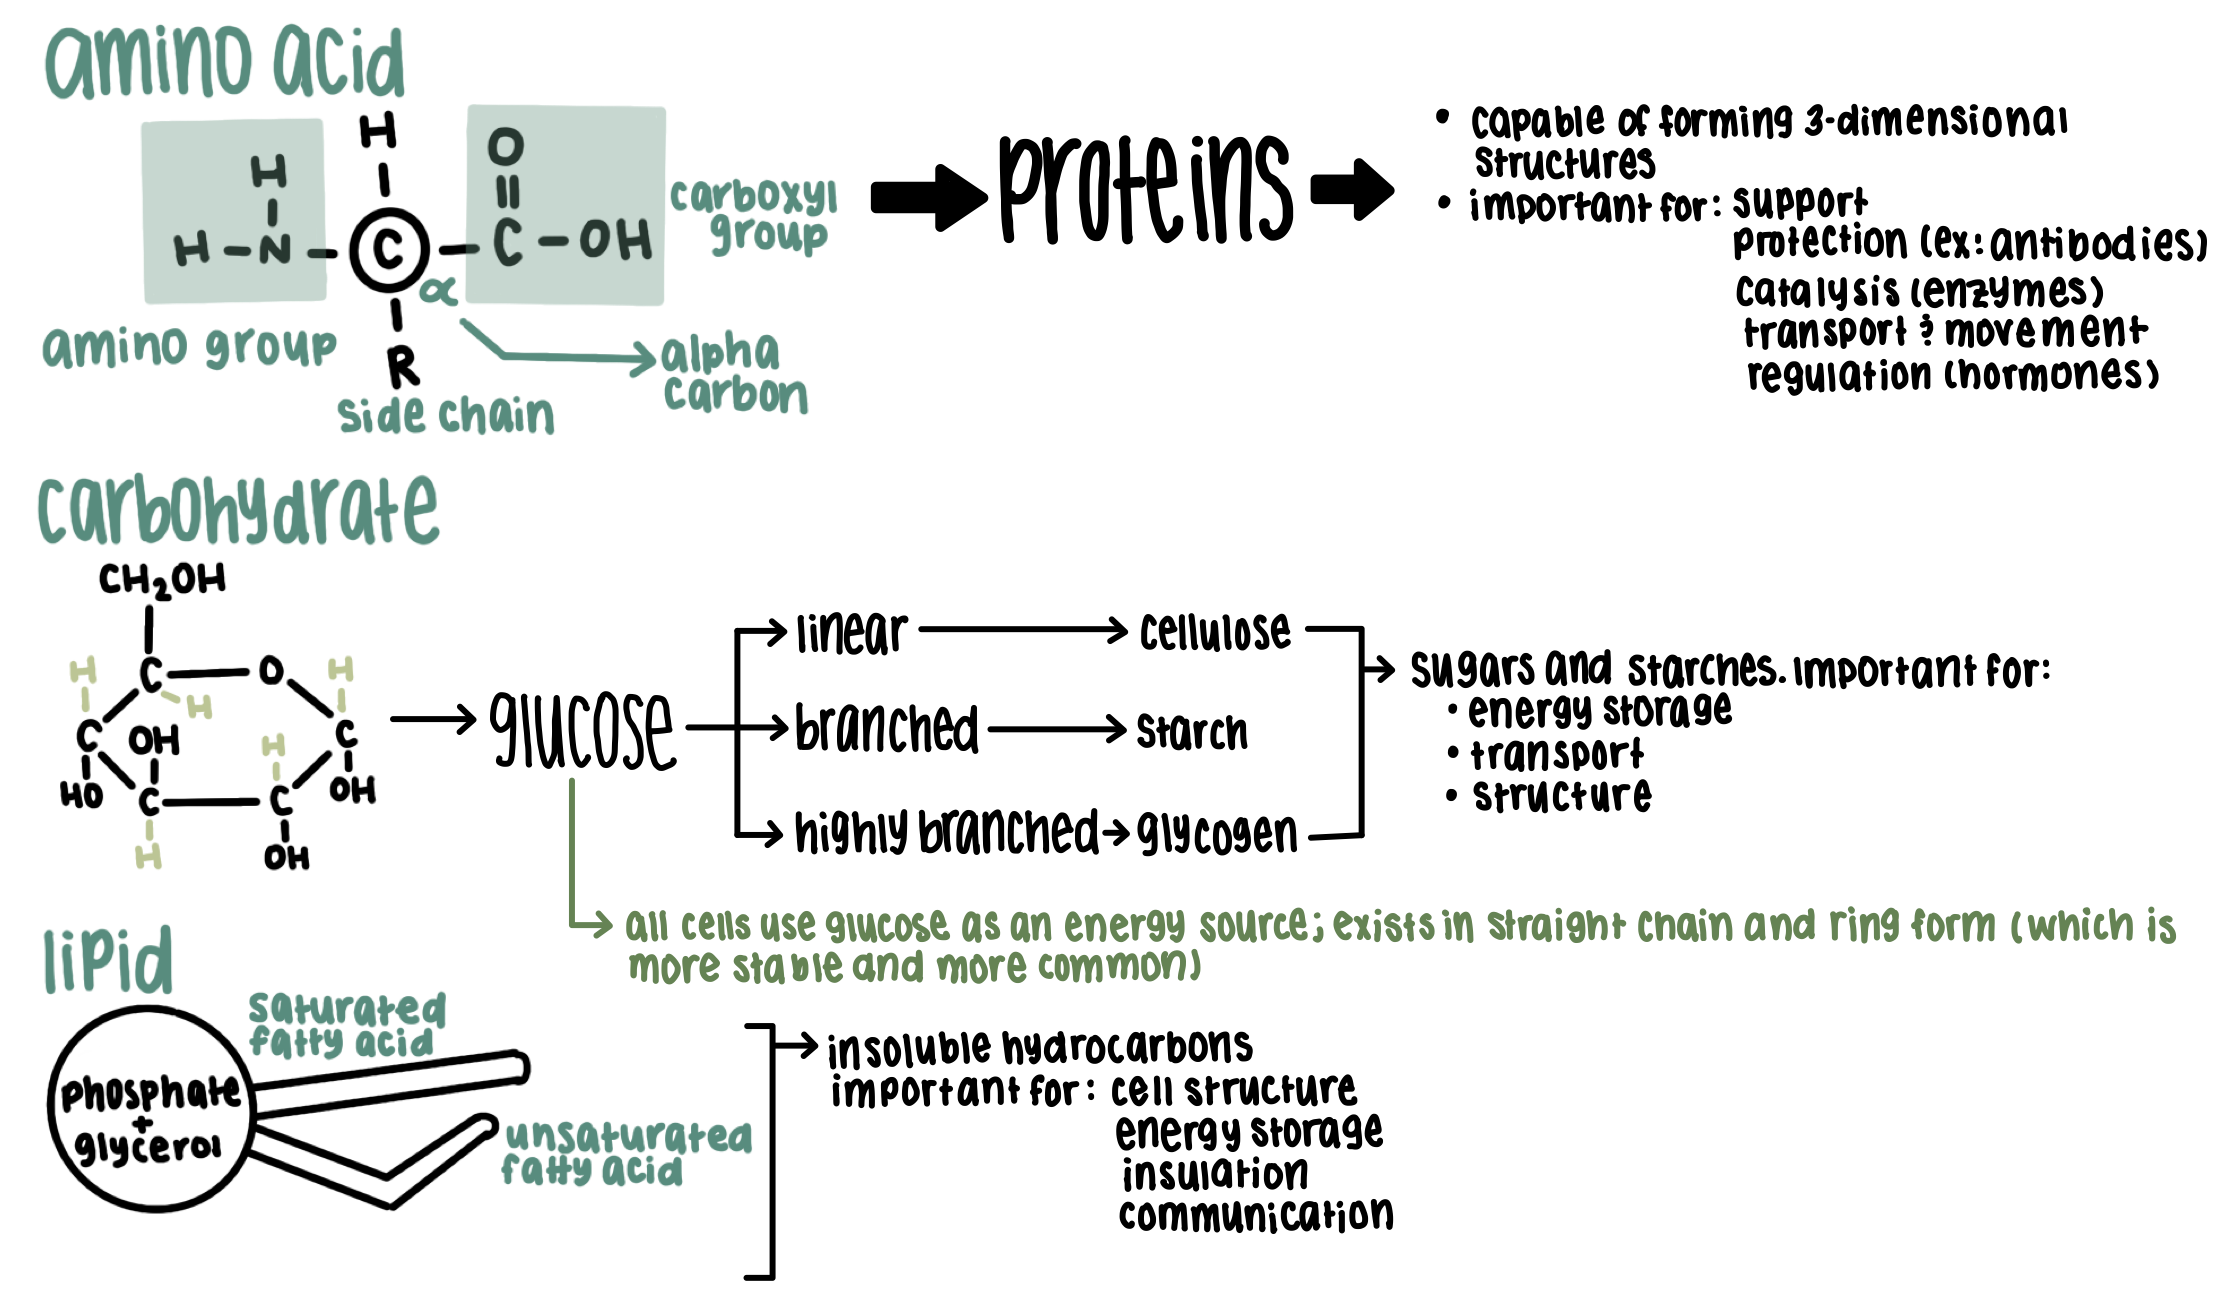 amino acid
H
H
O
H - N - C - C - OH
α
R
amino group
side chain
carboxyl
group
alpha
carbon
proteins
• capable of forming 3-dimensional
structures
• important for: support
protection (ex: antibodies)
catalysis (enzymes)
transport & movement
regulation (hormones)
carbohydrate
CH₂OH
H
C
O
H
H
C
OH
H
C
HO
C
C
OH
H
OH
glucose
linear
cellulose
branched
starch
highly branched
glycogen
sugars and starches. important for:
• energy storage
• transport
• structure
all cells use glucose as an energy source; exists in straight chain and ring form (which is
more stable and more common)
lipid
saturated
fatty acid
phosphate
+
glycerol
unsaturated
fatty acid
insoluble hydrocarbons
important for: cell structure
energy storage
insulation
communication